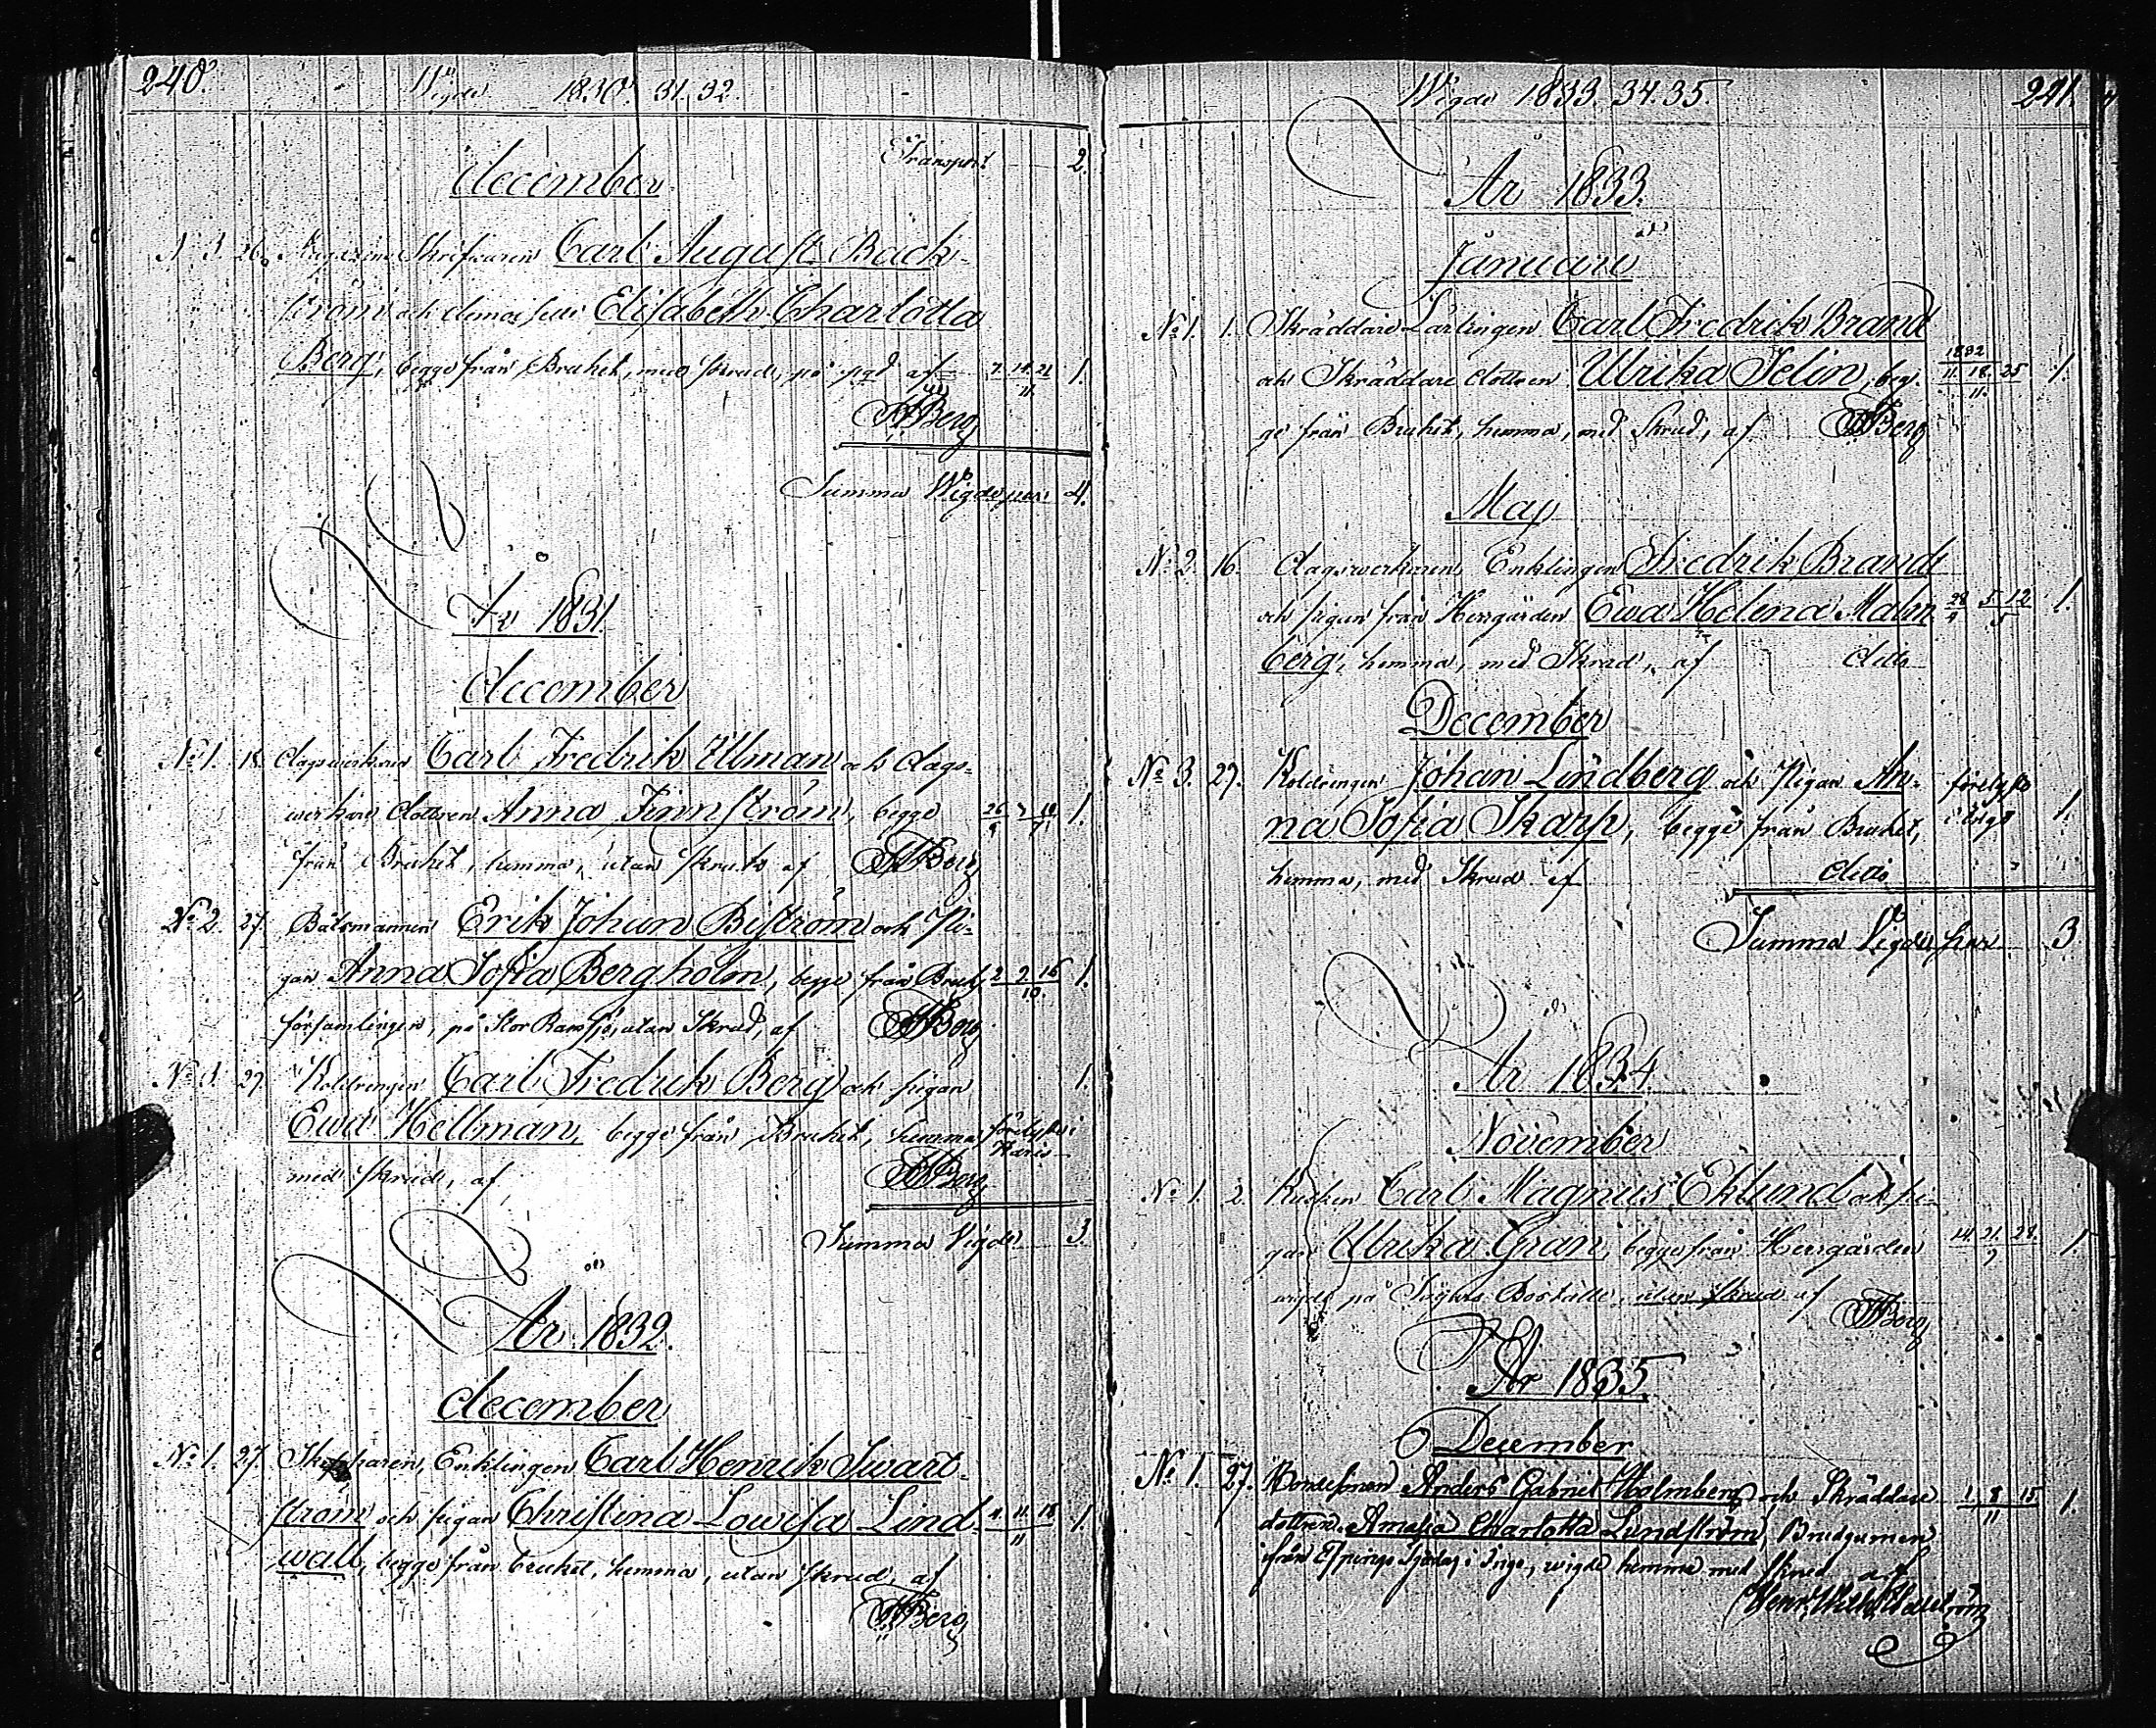 240.
Wigde 1830. 31. 32.
Transport 2.
december
N. 3. 26. Magazins Skrifvaren Carl August Bäck-
ström och demoiselle Elisabeth Charlotta
Berg, begge från Bruket, med skrud, på af 7. 14. 21 / 11. 1.
Berg
Summa Wigde par 4.
År 1831.
december
No 1. 18. dagsverkaren Carl Fredrik Ullman och dags-
verkare dottren Anna Finnström, begge 1.
från Bruket, hemma, utan skrud af Berg
No 2. 27. Båtsmannen Erik Johan Biström och Pi-
gan Anna Sofia Bergholm, begge från Bruks 2. 9. 16 / 10. 1.
församlingen, på Stor Ramsjö, utan Skrud, af Berg
No 3. 27 Koldrengen Carl Fredrik Berg och pigan 1.
Ewa Hellman, begge från Bruket, hemma, förelyste i
med skrud, af Berg
Summa Vigde 3.
År 1832.
december
No 1. 27. Skepparen, Enklingen Carl Henrik Swart-
ström och pigan Christina Lowisa Lind- 4. 11. 18 / 11 1.
wall, begge från bruket, hemma, utan skrud, af
Berg
Wigde 1833. 34. 35.
241.
År 1833.
Januari
No 1. 1. Skräddare Lärlingen Carl Fredrik Brandt
och Skräddare dottren Ulrika Selin, beg- 1832 / 11. 18. 25 / 11. 1.
ge från Bruket, hemma, med Skrud, af Berg
May
No 2. 16. dagsverkaren, Enklingen Fredrik Brandt
och pigan från Herrgården Ewa Helena Malm- 28 / 4 5. 12 / 5 1.
berg, hemma, med Skrud, af detto
December
No 3. 27. Koldrengen Johan Lindberg och Pigan An- förelyste
na Sofia Skarp, begge från Bruket, i Ingå 1.
hemma, med Skrud af detto
Summa Vigde par 3
År 1834.
November
No 1. 2. Kusken Carl Magnus Eklund och pi-
gan Ulrika Gran, begge från Herrgården 14. 21. 28. / 9 1.
wigde på Boställe, utan skrud af
Berg
År 1835
December
No 1. 27. Bondesonen Anders Gabriel Holmberg och Skräddare
dottren Amalia Charlotta Lundström, Brudgumen 1. 8. 15 / 11 1.
ifrån i Ingo, wigde hemma med skrud af
Henr. Wilh.